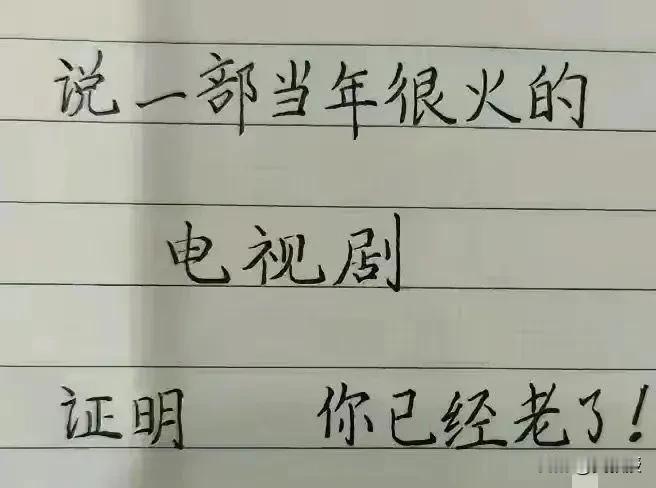 说一部当年很火的
电视剧
证明 你已经老了!